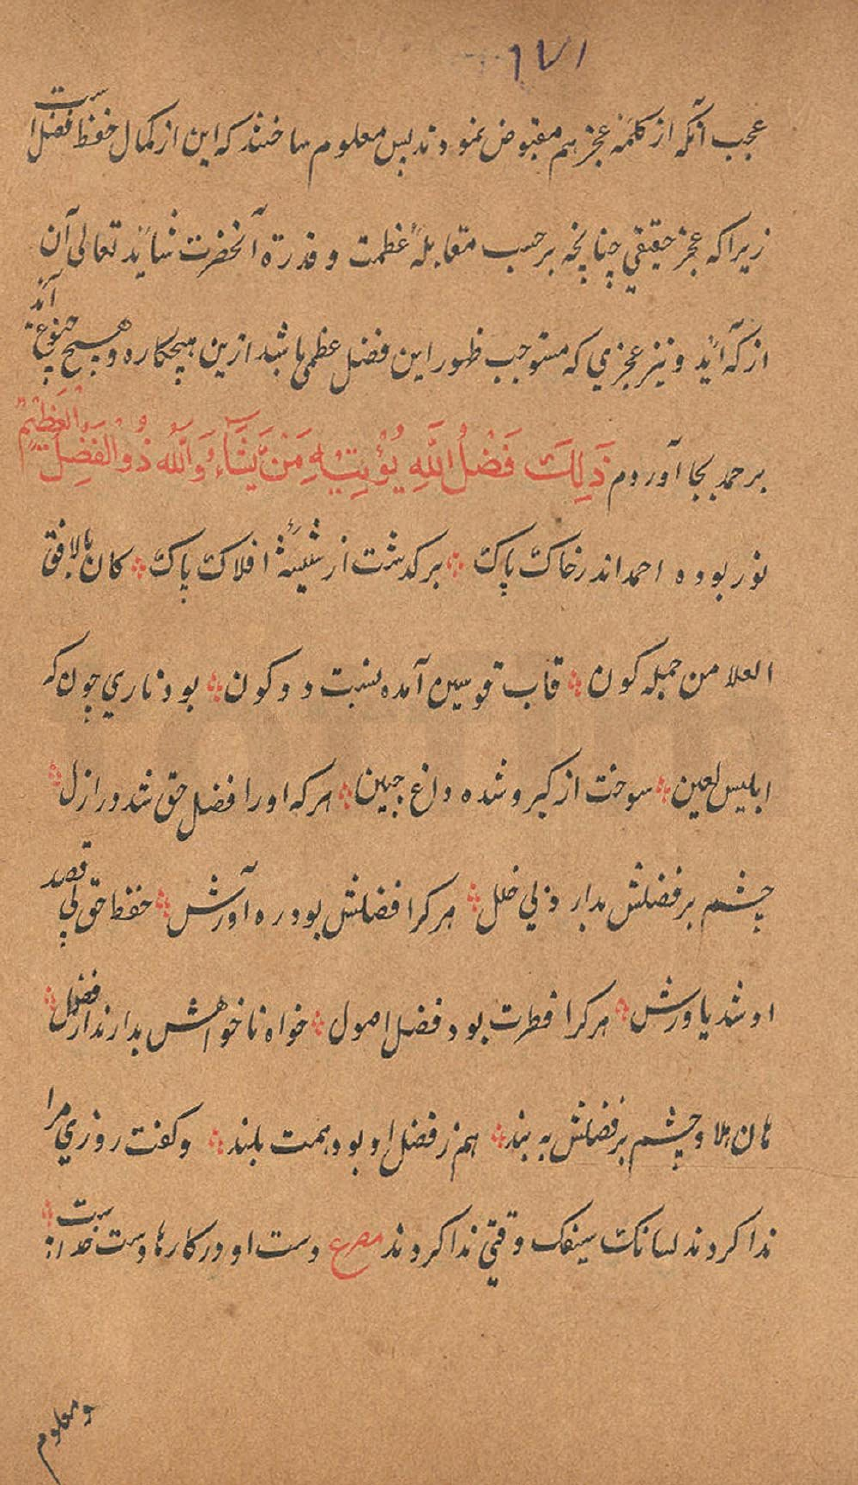 ۱۷۱
عجب آنکه از کلمهٔ عجز هم مقبوض نمودند پس معلوم ساختند که این از کمال حفظ فضل است
زیرا که عجز حقیقی چنانچه برحسب مقابلهٔ عظمت و قدرة آنحضرت شاید تعالی آن
از که آید و نیز عجزی که مستوجب ظهور این فضل عظمی باشد ازین هیچکاره و بهیچ نوع آید
بر حمد بجا آوردم ذَلِكَ فَضْلُ اللَّهِ يُؤْتِيهِ مَنْ يَشَاءُ وَاللَّهُ ذُو الْفَضْلِ الْعَظِيمِ
نور بوده احمد اندر خاک پاک ⁘ برگذشت از شیشهٔ افلاک پاک ⁘ کان بالافق
العلا من جمله کون ⁘ قاب قوسین آمده نسبت دو کون ⁘ بود ناری چون که
ابلیس لعین ⁘ سوخت از کبر و شده داغ جبین ⁘ هر که او را فضل حق شد در ازل ⁘
چشم بر فضلش مدار ذی خلل ⁘ هر کرا فضلش بود ره آورش ⁘ حفظ حق بی قصد
او شد یاورش ⁘ هر کرا فطرت بود فضل اصول ⁘ خواه ناخواهش بدارند از فضول ⁘
هان هلا و چشم بر فضلش به بند ⁘ هم ز فضل او بود همت بلند ⁘ و گفت روزی مرا
ندا کردند لسانک سیفک وقتی ندا کردند مصرع دست او در کارها دست خداست ⁘
و معلوم